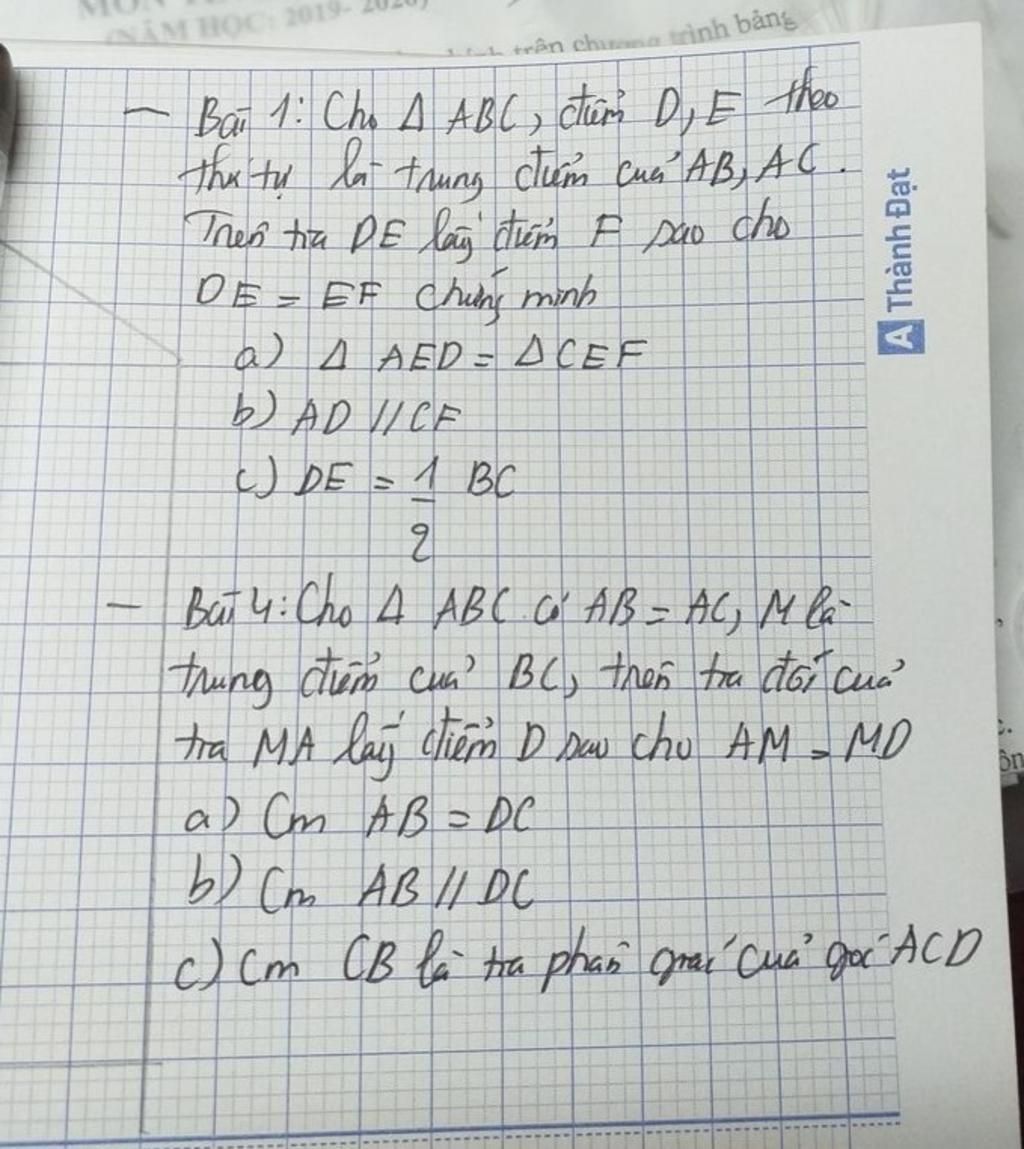 MÔN
(NĂM HỌC: 2019- 2020)
trên chương trình bảng
— Bài 1: Cho Δ ABC, điểm D, E theo
thứ tự là trung điểm của AB, AC.
Trên tia DE lấy điểm F sao cho
DE = EF Chứng minh
a) Δ AED = Δ CEF
b) AD // CF
c) DE = 1/2 BC
— Bài 4: Cho Δ ABC có AB = AC, M là
trung điểm của BC, trên tia đối của
tia MA lấy điểm D sao cho AM = MD
a) Cm AB = DC
b) Cm AB // DC
c) Cm CB là tia phân giác của góc ACD
A Thành Đạt